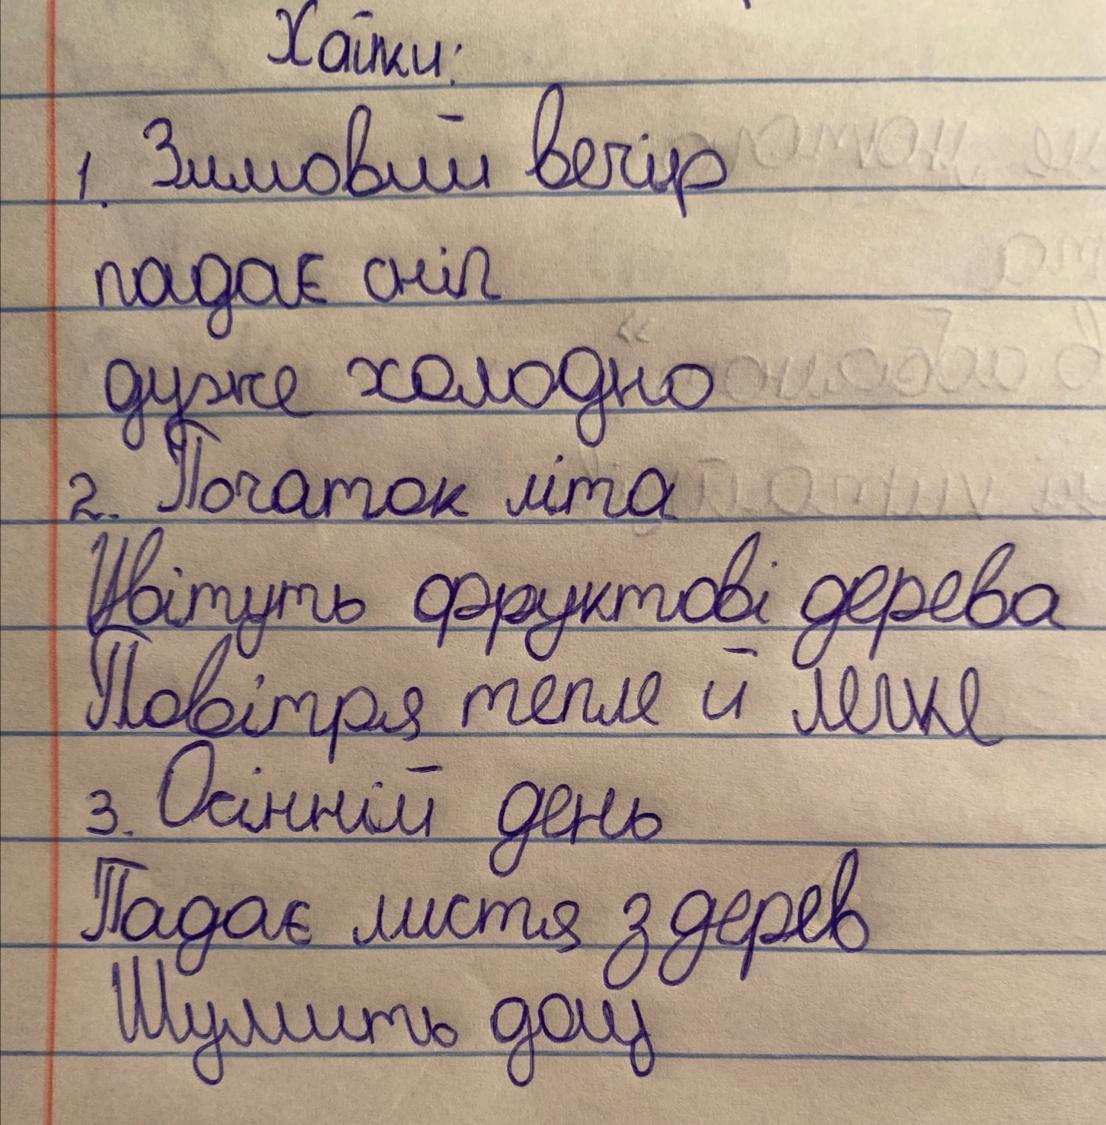 Хайку:
1. Зимовий вечір
падає сніг
дуже холодно
2. Початок літа
Цвітуть фруктові дерева
Повітря тепле й легке
3. Осінній день
Падає листя з дерев
Шумить дощ